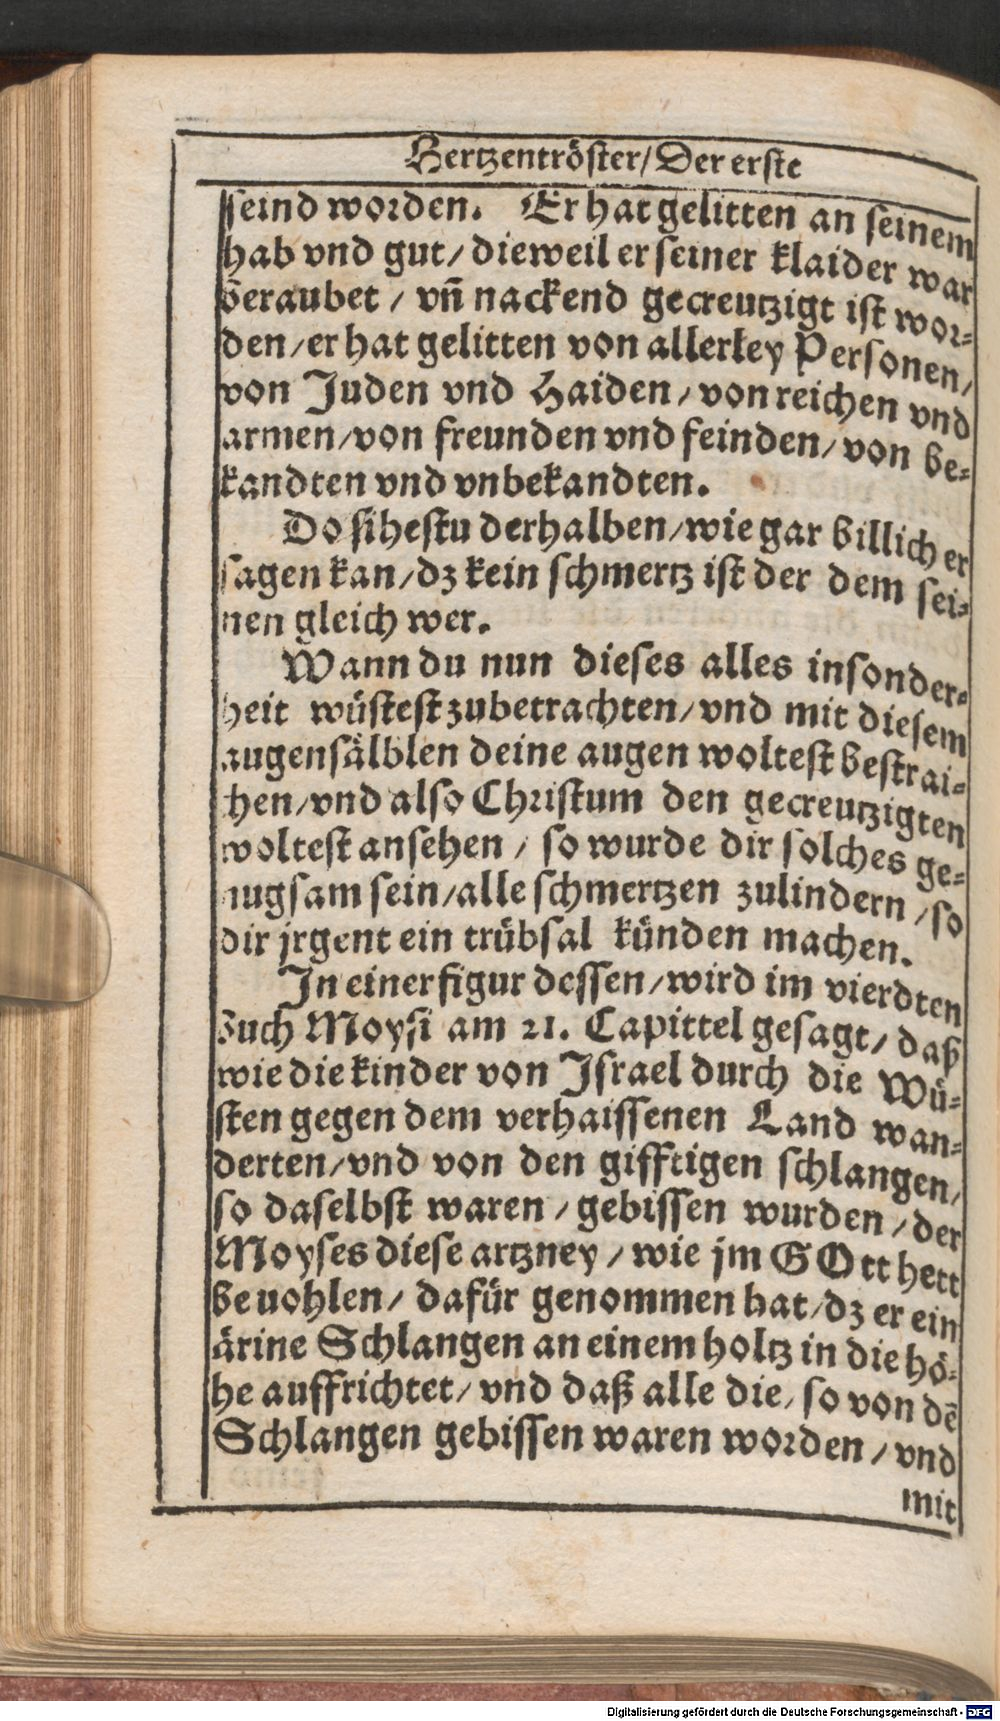 Hertzentröster/ Der erste
seind worden. Er hat gelitten an seinem
hab vnd gut/ dieweil er seiner klaider war
beraubet/ vñ nackend gecreutzigt ist wor-
den/ er hat gelitten von allerley Personen/
von Juden vnd Haiden/ von reichen vnd
armen/ von freunden vnd feinden/ von be-
kandten vnd vnbekandten.
Do sihestu derhalben/ wie gar billich er
sagen kan/ dz kein schmertz ist der dem sei-
nen gleich wer.
Wann du nun dieses alles insonder-
heit wüstest zubetrachten/ vnd mit diesem
augensälblen deine augen woltest bestrai-
chen/ vnd also Christum den gecreutzigten
woltest ansehen/ so wurde dir solches ge-
nugsam sein/ alle schmertzen zulindern/ so
dir jrgent ein trübsal künden machen.
In einer figur dessen/ wird im vierdten
Buch Moysi am 21. Capittel gesagt/ daß
wie die kinder von Israel durch die Wü-
sten gegen dem verhaissenen Land wan-
derten/ vnd von den gifftigen schlangen/
so daselbst waren/ gebissen wurden/ der
Moyses diese artzney/ wie jm GOtt hett
beuohlen/ dafür genommen hat/ dz er ein
ärine Schlangen an einem holtz in die hö-
he auffrichtet/ vnd daß alle die/ so von dē
Schlangen gebissen waren worden/ vnd
mit
Digitalisierung gefördert durch die Deutsche Forschungsgemeinschaft - DFG